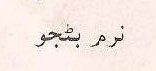 نرم بٹجو